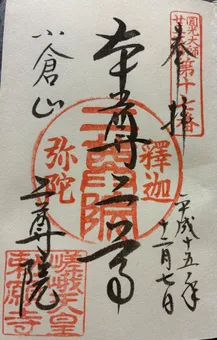 圓光大師
第十七番
奉拝
平成十五年
十二月七日
釋迦
本尊二尊
二尊院
弥陀
小倉山
二尊院
嵯峨天皇
勅願寺